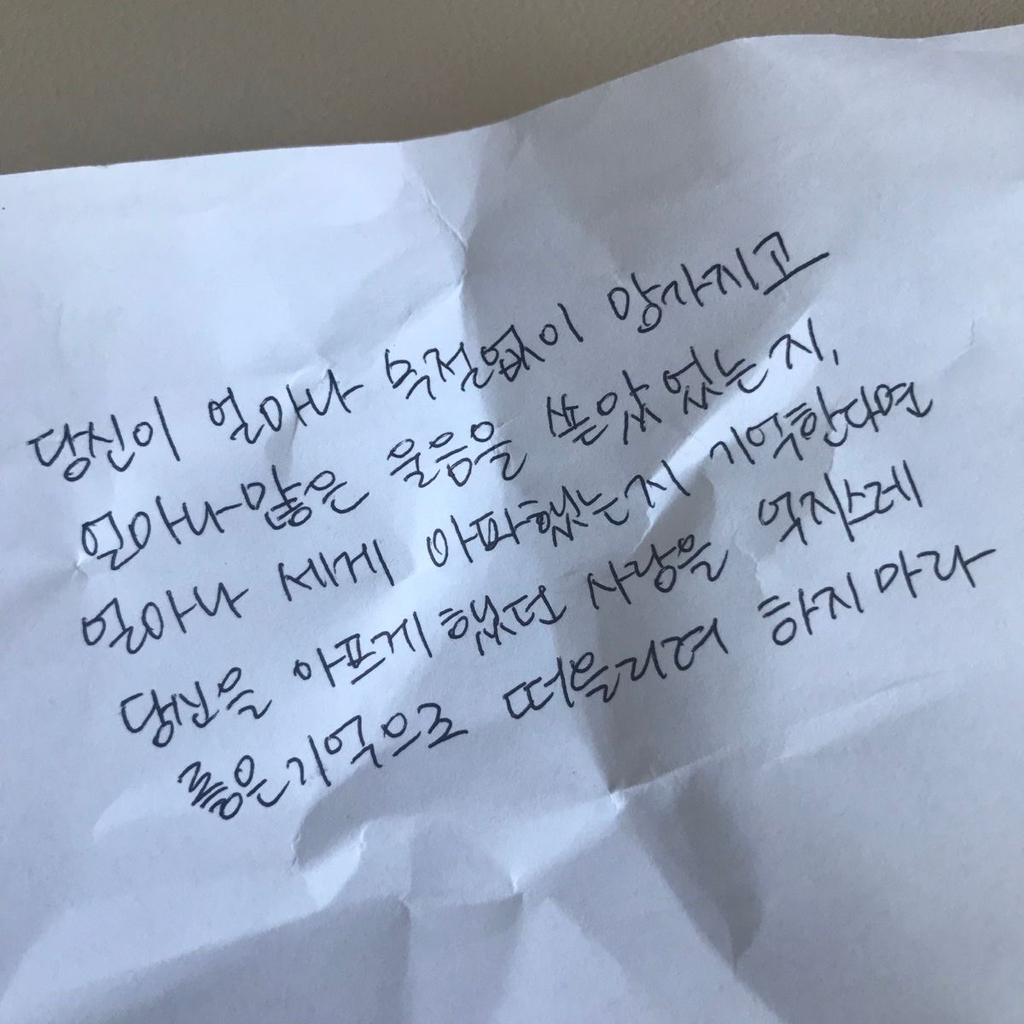 당신이 얼마나 속절없이 망가지고
얼마나 많은 울음을 쏟았었는지,
얼마나 세게 아파했는지 기억한다면
당신을 아프게 했던 사랑을 억지스레
좋은 기억으로 떠올리려 하지 마라